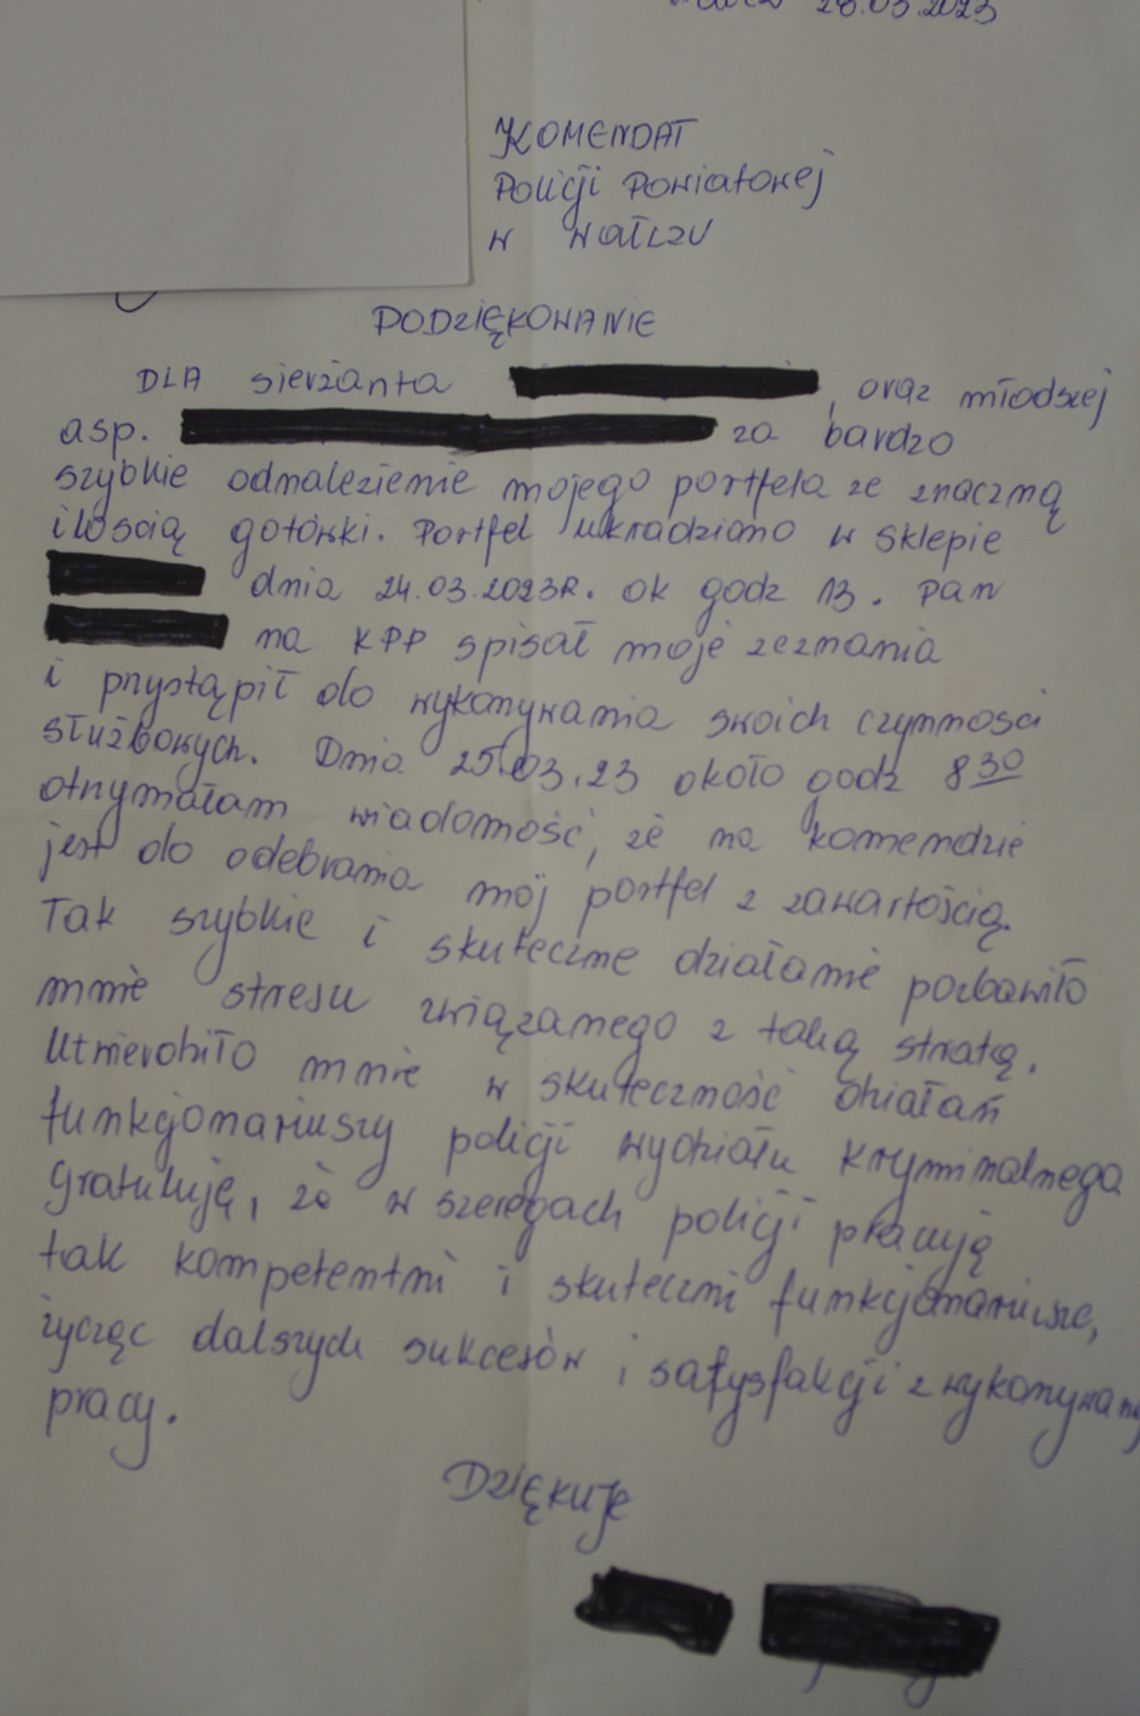 28.03.2023
KOMENDAT
Policji Powiatowej
w wałczu
PODZIĘKOWANIE
DLA sierżanta , oraz młodszej
asp. za bardzo
szybkie odnalezienie mojego portfela ze znaczną
ilością gotówki. Portfel ukradziono w sklepie
dnia 24.03.2023R. ok godz 13. Pan
na KPP spisał moje zeznania
i przystąpił do wykonywania swoich czynności
służbowych. Dnia 25.03.23 około godz 8 30
otrzymałam wiadomość, że na komendzie
jest do odebrania mój portfel z zawartością.
Tak szybkie i skuteczne działanie pozbawiło
mnie stresu związanego z taką stratą.
Utwierdziło mnie w skuteczność działań
funkcjonariuszy policji wydziału kryminalnego.
Gratuluję, że w szeregach policji pracują
tak kompetentni i skuteczni funkcjonariusze,
życząc dalszych sukcesów i satysfakcji z
pracy.
Dziękuje